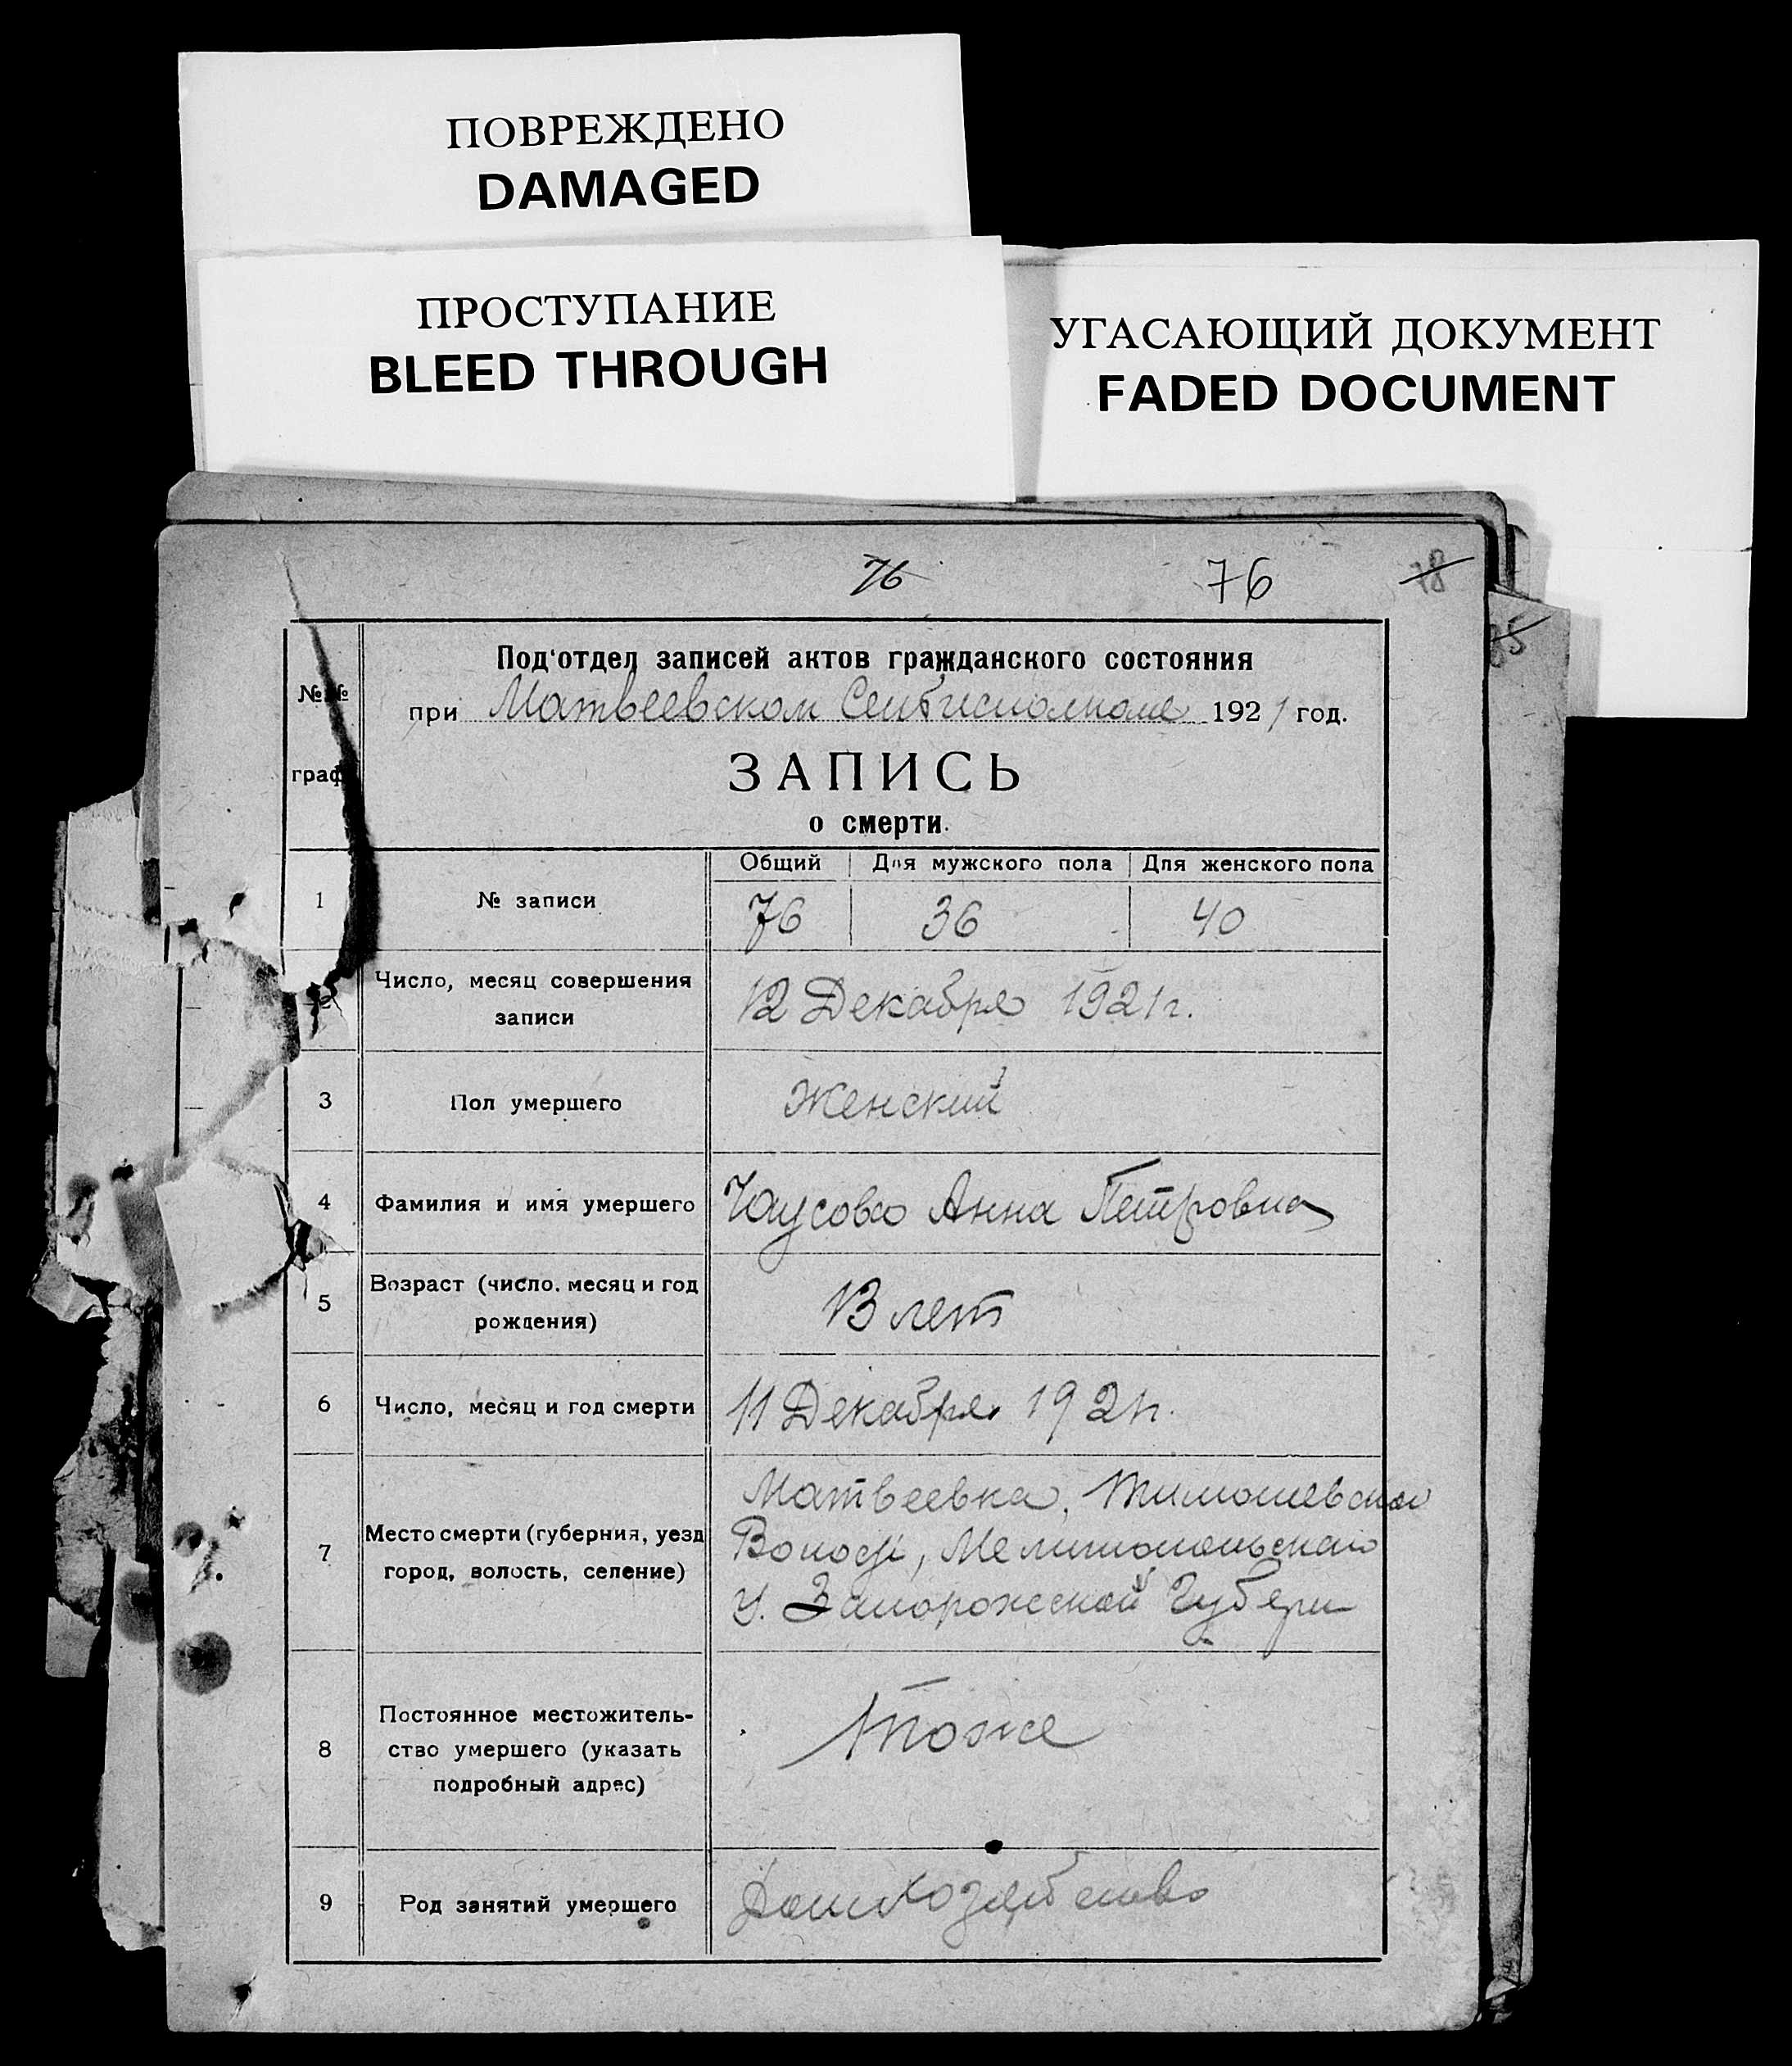 ПОВРЕЖДЕНО
DAMAGED
ПРОСТУПАНИЕ
BLEED THROUGH
УГАСАЮЩИЙ ДОКУМЕНТ
FADED DOCUMENT
76 76 78
85
№№
граф
Под'отдел записей актов гражданского состояния
при Матвеевском 1921 год.
ЗАПИСЬ
о смерти.
Общий Для мужского пола Для женского пола
1 № записи 76 36 40
2 Число, месяц совершения
записи 12 Декабря 1921 г.
3 Пол умершего Женский
4 Фамилия и имя умершего Чаусова Анна Петровна
5 Возраст (число, месяц и год
рождения) 13 лет
6 Число, месяц и год смерти 11 Декабря 1921 г.
7 Место смерти (губерния, уезд
город, волость, селение)
Матвеевка, Тимошевской
Волости, Мелитопольского
У. Запорожской Губерн
8 Постоянное местожитель-
ство умершего (указать
подробный адрес)
Тоже
9 Род занятий умершего Домхозяйство